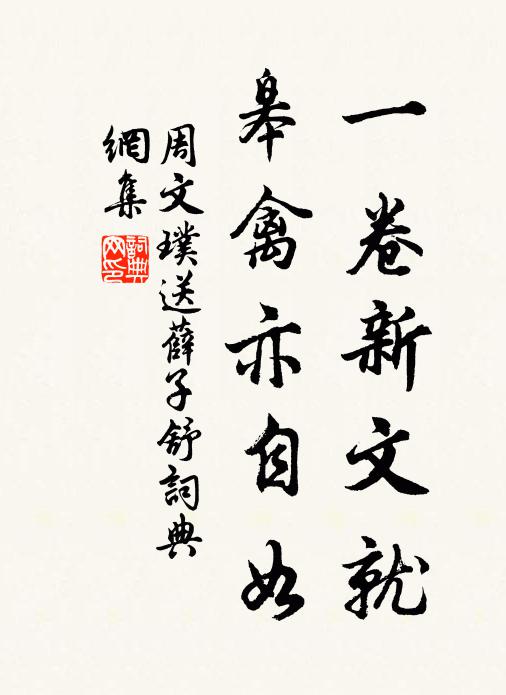 一卷新文就
皋禽亦自如
周文璞送薛子舒詞典
網集
詞典网印